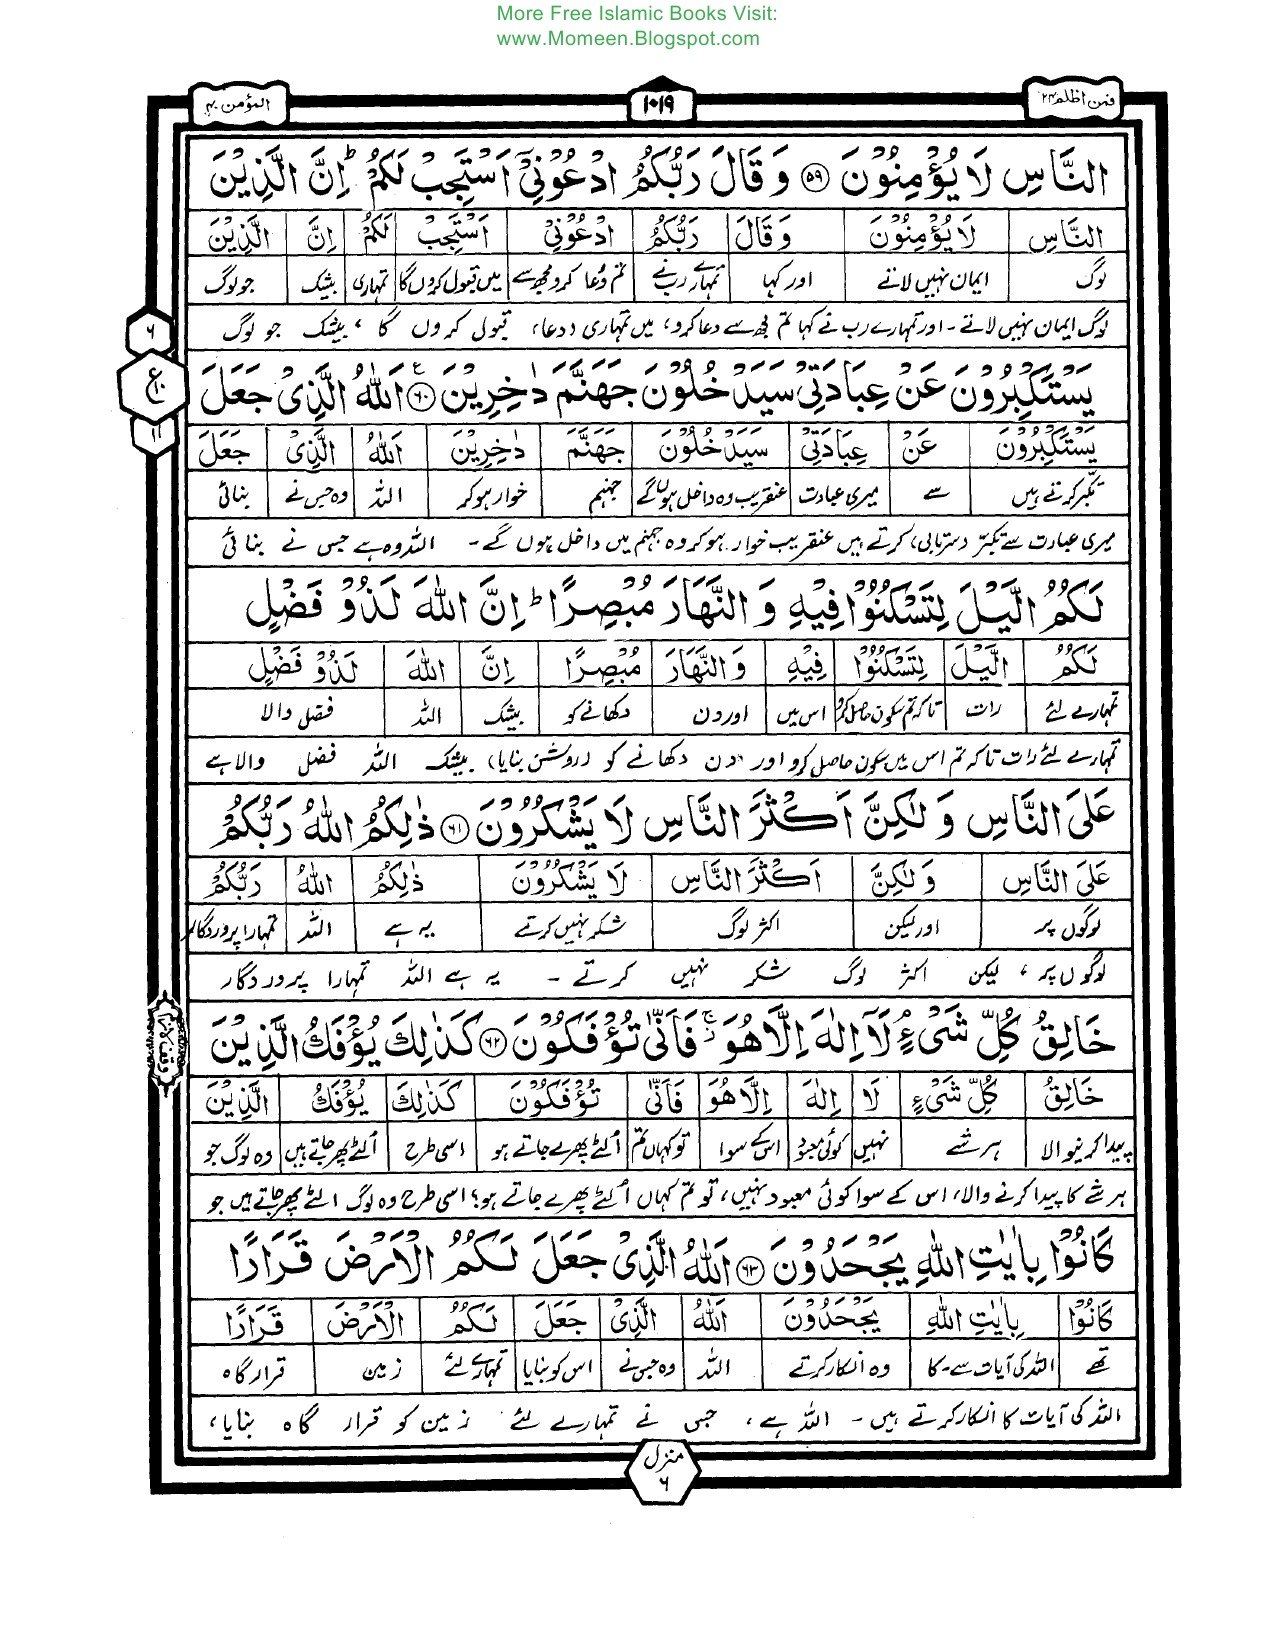 More Free Islamic Books Visit:
www.Momeen.Blogspot.com
فمن اظلم ۲۴ ۱۰۱۹ المؤمن ۴۰
النَّاسِ لَا يُؤْمِنُوْنَ ﴿۵۹﴾ وَقَالَ رَبُّكُمُ ادْعُوْنِيْٓ اَسْتَجِبْ لَكُمْ ؕ اِنَّ الَّذِيْنَ
النَّاسِ لَا يُؤْمِنُوْنَ وَقَالَ رَبُّكُمُ ادْعُوْنِيْ اَسْتَجِبْ لَكُمْ اِنَّ الَّذِيْنَ
لوگ ایمان نہیں لاتے اور کہا تمہارے رب نے تم دعا کرو مجھ سے میں قبول کروں گا تمہاری بیشک جو لوگ
لوگ ایمان نہیں لاتے ۔ اور تمہارے رب نے کہا تم مجھ سے دعا کرو، میں تمہاری (دعا) قبول کروں گا ، بیشک جو لوگ
۶
ع
۱۰
۱۱
يَسْتَكْبِرُوْنَ عَنْ عِبَادَتِيْ سَيَدْخُلُوْنَ جَهَنَّمَ دٰخِرِيْنَ ﴿۶۰﴾ اَللّٰهُ الَّذِيْ جَعَلَ
يَسْتَكْبِرُوْنَ عَنْ عِبَادَتِيْ سَيَدْخُلُوْنَ جَهَنَّمَ دٰخِرِيْنَ اَللّٰهُ الَّذِيْ جَعَلَ
تکبر کرتے ہیں سے میری عبادت عنقریب وہ داخل ہوں گے جہنم خوار ہو کر اللہ وہ جس نے بنائی
میری عبادت سے تکبر (سرتابی) کرتے ہیں عنقریب خوار ہو کر وہ جہنم میں داخل ہوں گے ۔ اللہ وہ ہے جس نے بنائی
لَكُمُ الَّيْلَ لِتَسْكُنُوْا فِيْهِ وَالنَّهَارَ مُبْصِرًا ؕ اِنَّ اللّٰهَ لَذُوْ فَضْلٍ
لَكُمُ الَّيْلَ لِتَسْكُنُوْا فِيْهِ وَالنَّهَارَ مُبْصِرًا اِنَّ اللّٰهَ لَذُوْ فَضْلٍ
تمہارے لئے رات تاکہ تم سکون حاصل کرو اس میں اور دن دکھانے کو بیشک اللہ فضل والا
تمہارے لئے رات تاکہ تم اس میں سکون حاصل کرو اور دن دکھانے کو (روشن بنایا) بیشک اللہ فضل والا ہے
عَلَى النَّاسِ وَلٰكِنَّ اَكْثَرَ النَّاسِ لَا يَشْكُرُوْنَ ﴿۶۱﴾ ذٰلِكُمُ اللّٰهُ رَبُّكُمْ
عَلَى النَّاسِ وَلٰكِنَّ اَكْثَرَ النَّاسِ لَا يَشْكُرُوْنَ ذٰلِكُمُ اللّٰهُ رَبُّكُمْ
لوگوں پر اور لیکن اکثر لوگ شکر نہیں کرتے یہ ہے اللہ تمہارا پروردگار
لوگوں پر ، لیکن اکثر لوگ شکر نہیں کرتے ۔ یہ ہے اللہ تمہارا پروردگار
خَالِقُ كُلِّ شَيْءٍ ۘ لَآ اِلٰهَ اِلَّا هُوَ ۚ فَاَنّٰى تُؤْفَكُوْنَ ﴿۶۲﴾ كَذٰلِكَ يُؤْفَكُ الَّذِيْنَ
خَالِقُ كُلِّ شَيْءٍ لَا اِلٰهَ اِلَّا هُوَ فَاَنّٰى تُؤْفَكُوْنَ كَذٰلِكَ يُؤْفَكُ الَّذِيْنَ
پیدا کرنیوالا ہر شے نہیں کوئی معبود اس کے سوا تو کہاں تم الٹے پھرے جاتے ہو اسی طرح الٹے پھر جاتے ہیں وہ لوگ جو
ہر شے کا پیدا کرنے والا، اس کے سوا کوئی معبود نہیں، تو تم کہاں الٹے پھرے جاتے ہو؟ اسی طرح وہ لوگ الٹے پھر جاتے ہیں جو
كَانُوْا بِاٰيٰتِ اللّٰهِ يَجْحَدُوْنَ ﴿۶۳﴾ اَللّٰهُ الَّذِيْ جَعَلَ لَكُمُ الْاَرْضَ قَرَارًا
كَانُوْا بِاٰيٰتِ اللّٰهِ يَجْحَدُوْنَ اَللّٰهُ الَّذِيْ جَعَلَ لَكُمُ الْاَرْضَ قَرَارًا
تھے اللہ کی آیات سے ۔ کا وہ انکار کرتے اللہ وہ جس نے اس کو بنایا تمہارے لئے زمین قرار گاہ
اللہ کی آیات کا انکار کرتے ہیں ۔ اللہ ہے ، جس نے تمہارے لئے زمین کو قرار گاہ بنایا ،
منزل
۶